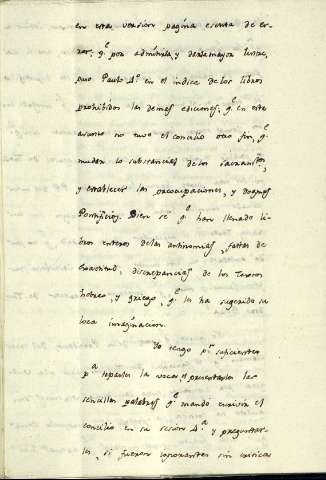 en esta version pagina esenta de er-
ror, q.e por admitirla, y darla mayor lustre,
puso Paulo 4.o en el indice de los libros
prohibidos las demas ediciones, q.e en este
asunto no tuvo el concilio otro fin, q.e
mudar lo substancial de los sacramtos,
y establecer las preocupaciones, y dogmas
Pontificios. Bien sé q.e han llenado li-
bros enteros de las antinomias, faltas de
exactitud, discrepancias de los Textos
hebreo, y griego, q.e les ha sugerido su
loca imaginacion.
Yo tengo p.r suficientes
p.a taparles la boca el presentarles las
sencillas palabras q.e mandó escribir el
concilio en su sesion 4.a y preguntar-
les, si fueron ignorantes sin critica